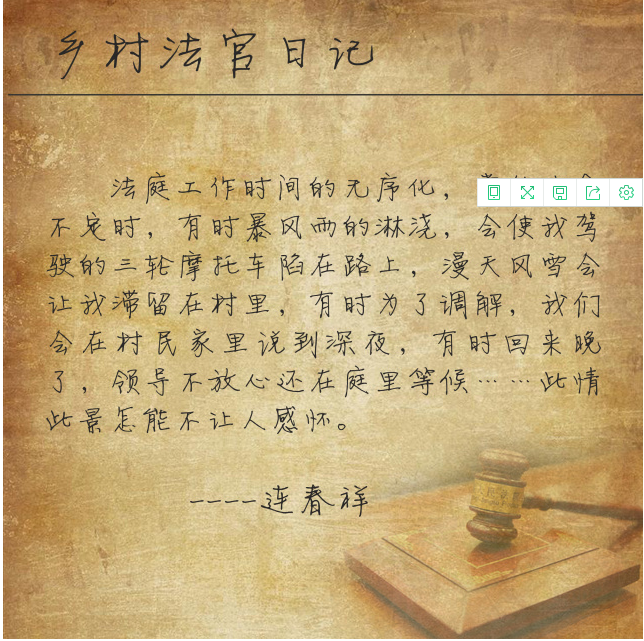 乡村法官日记
法庭工作时间的无序化，
不定时，有时暴风雨的淋浇，会使我驾
驶的三轮摩托车陷在路上，漫天风雪会
让我滞留在村里，有时为了调解，我们
会在村民家里说到深夜，有时回来晚
了，领导不放心还在庭里等候……此情
此景怎能不让人感怀。
----连春祥